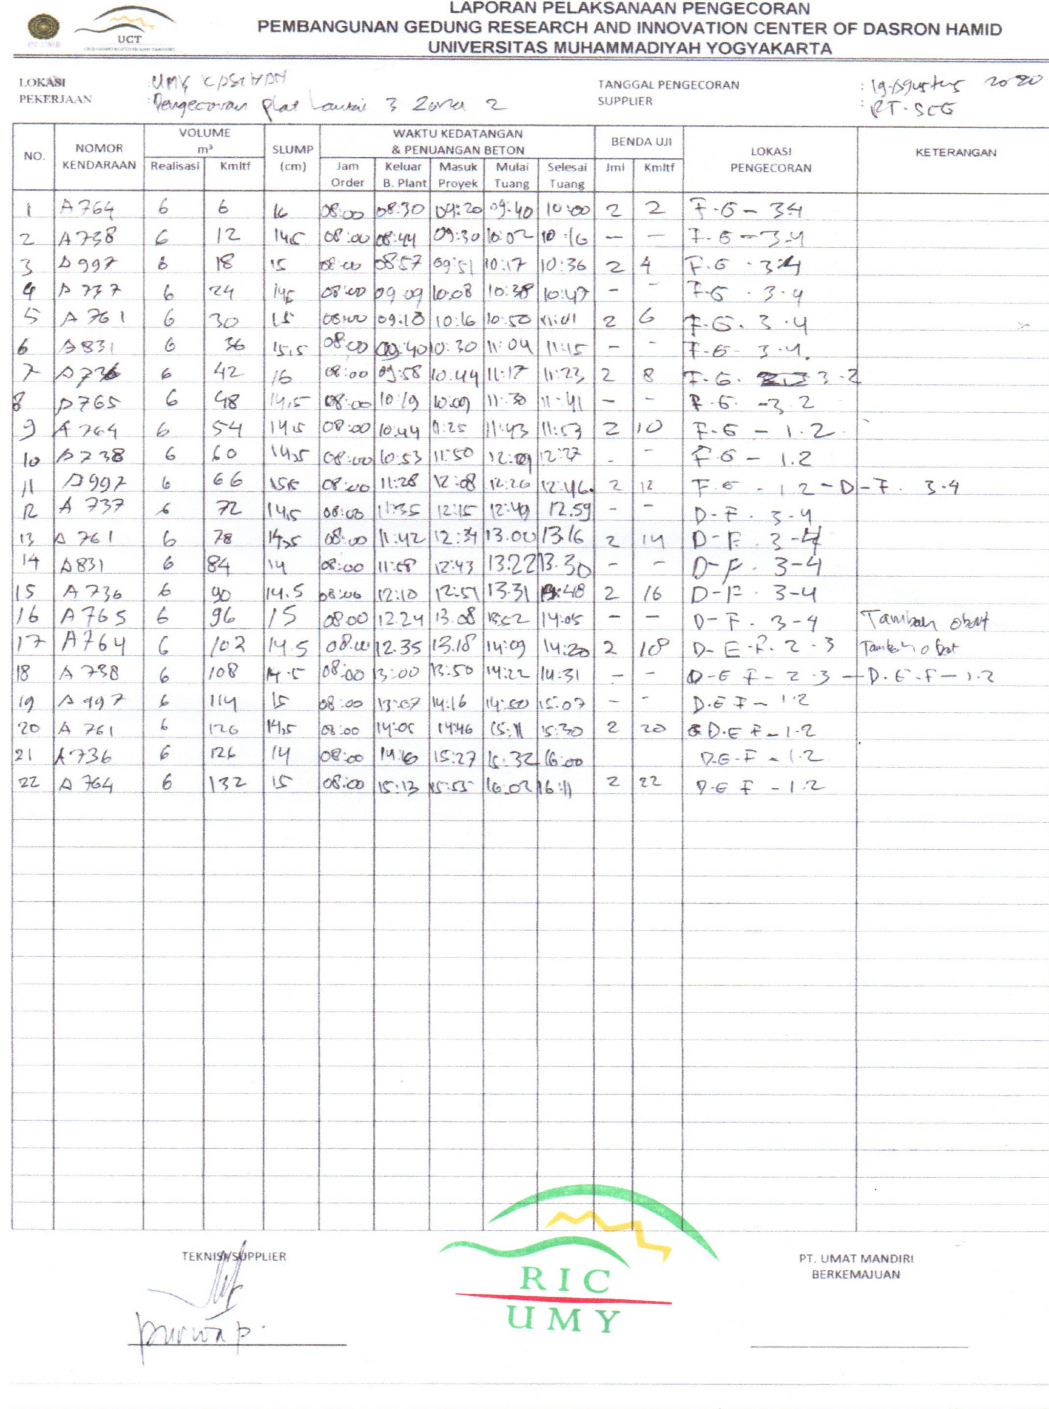 LAPORAN PELAKSANAAN PENGECORAN
PEMBANGUNAN GEDUNG RESEARCH AND INNOVATION CENTER OF DASRON HAMID
UNIVERSITAS MUHAMMADIYAH YOGYAKARTA
UCT
LOKASI : UMY TANGGAL PENGECORAN : 19 Agustus 2020
PEKERJAAN : Pengecoran plat Lantai 3 Zona 2 SUPPLIER : PT. SCG
NO. NOMOR KENDARAAN VOLUME m³ Realisasi Kmltf SLUMP (cm) WAKTU KEDATANGAN & PENUANGAN BETON Jam Order Keluar B. Plant Masuk Proyek Mulai Tuang Selesai Tuang BENDA UJI Jml Kmltf LOKASI PENGECORAN KETERANGAN
1 A764 6 6 16 08:00 08:30 09:20 09:40 10:00 2 2 F-G - 34
2 A738 6 12 14,5 08:00 08:44 09:30 10:02 10:16 – – F-G - 3-4
3 A997 6 18 15 08:00 08:57 09:51 10:17 10:36 2 4 F.G - 3-4
4 A737 6 24 14,5 08:00 09:09 10:08 10:38 10:47 - - F-G . 3-4
5 A761 6 30 15 08:00 09.18 10:16 10:50 11:01 2 6 F-G. 3-4
6 A831 6 36 15,5 08:00 09:40 10:30 11:04 11:15 - - F-G- 3-4.
7 A736 6 42 16 08:00 09:58 10.44 11:17 11:23 2 8 F-G. 3-2
8 A765 6 48 14,5 08:00 10:19 11:30 11-41 - - F-G. -3.2
9 A764 6 54 14,5 08:00 10:44 11:25 11:43 11:53 2 10 F-G - 1.2
10 A738 6 60 14,5 08:00 10:53 11:50 12:09 12:27 - - F-G - 1.2
11 A997 6 66 15,5 08:00 11:28 12:08 12:26 12:46. 2 12 F.G - 1 2 - D-F. 3-4
12 A 737 6 72 14,5 08:00 11:35 12:15 12:49 12.59 - - D-F. 3-4
13 A 761 6 78 14,5 08:00 11:42 12:34 13.00 13.16 2 14 D-F. 3-4
14 A831 6 84 14 08:00 11:58 12:43 13:22 13.30 - - D-F. 3-4
15 A 736 6 90 14.5 08:00 12:10 12:51 13.31 13:48 2 16 D-F. 3-4
16 A765 6 96 15 08:00 12.24 13.08 13:52 14:05 - - D-F. 3-4 Tambah obat
17 A764 6 102 14.5 08:00 12.35 13.18 14:09 14:20 2 18 D-E-F. 2-3 Tambah obat
18 A 738 6 108 14.5 08:00 13:00 13:50 14:22 14:31 - - D-E F - 2-3 - D.E.F - 1-2
19 A 997 6 114 15 08:00 13:07 14:16 14:50 15:07 - - D.E F - 1-2
20 A 761 6 126 14,5 08:00 14:01 14:46 15:11 15:30 2 20 D.E F - 1-2
21 A736 6 126 14 08:00 14:16 15:27 15:32 16:00 D.E-F - 1.2
22 A 764 6 132 15 08:00 15:13 15:55 16:02 16:11 2 22 D.E F - 1.2
TEKNISI/SUPPLIER PT. UMAT MANDIRI
BERKEMAJUAN
RIC
UMY
purwa p.